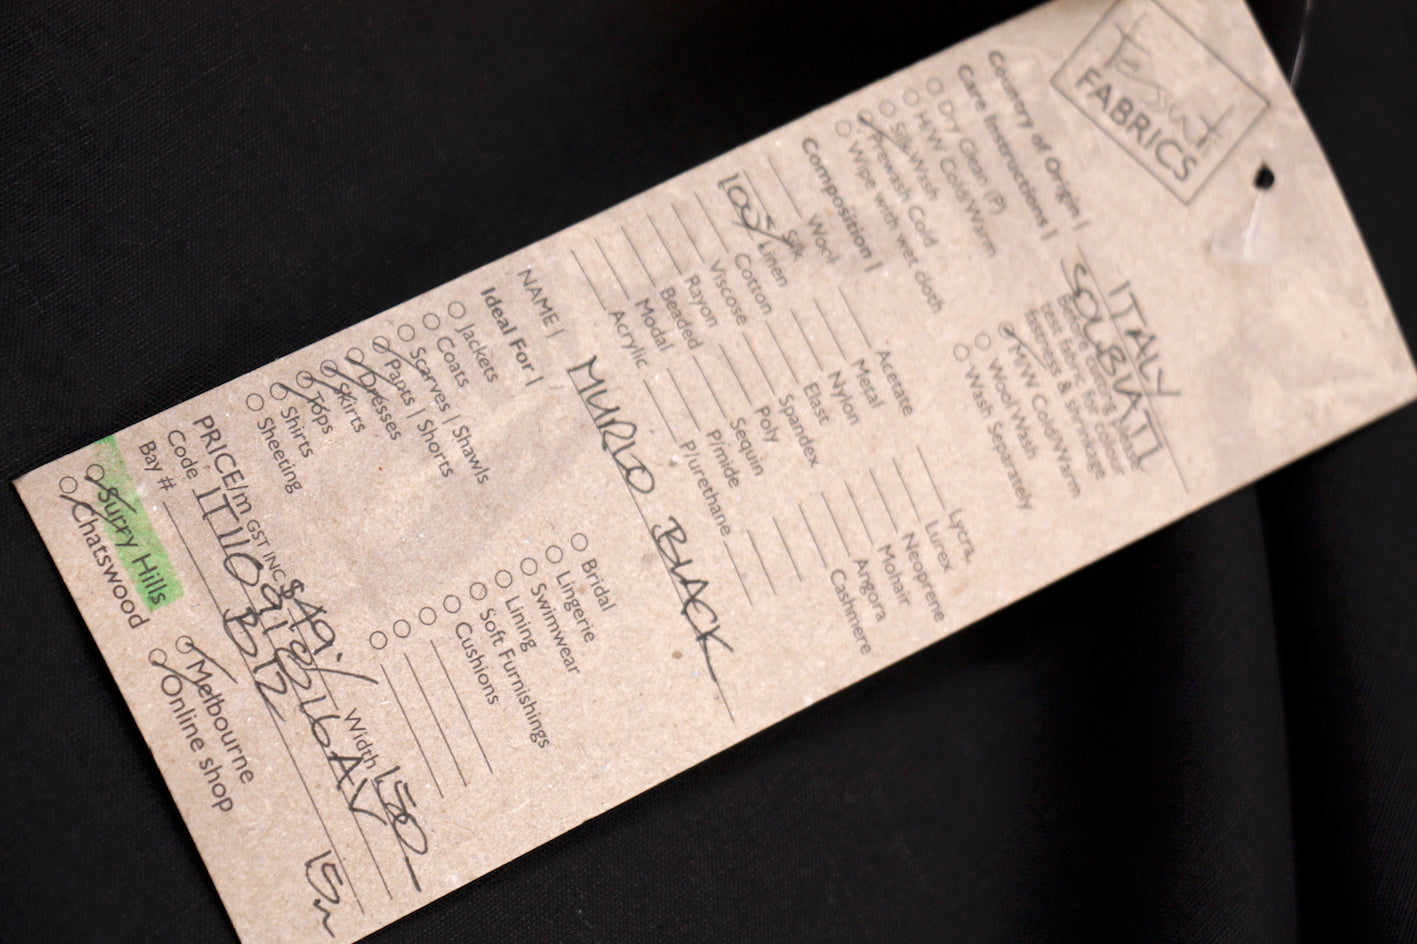 tessuti
FABRICS
Country of Origin | ITALY
SOLBIATI
Care Instructions | Before cutting please
test fabric for colour
fastness & shrinkage
Dry Clean (P)
H/W Cold/Warm
Silk Wash
Prewash Cold
Wipe with wet cloth
M/W Cold/Warm
Wool Wash
Wash Separately
Composition |
Wool
Silk
100% Linen
Cotton
Viscose
Rayon
Beaded
Modal
Acrylic
Acetate
Metal
Nylon
Elast
Spandex
Poly
Sequin
P/mide
P/urethane
Lycra
Lurex
Neoprene
Mohair
Angora
Cashmere
NAME | BLACK
Ideal For |
Jackets
Coats
Scarves | Shawls
Pants | Shorts
Dresses
Skirts
Tops
Shirts
Sheeting
Bridal
Lingerie
Swimwear
Lining
Soft Furnishings
Cushions
PRICE/m GST INC $49./ Width 150
Code
Bay #
Surry Hills
Chatswood
Melbourne
Online shop
15m